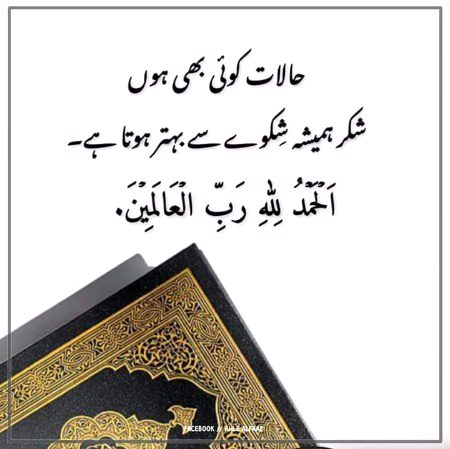 حالات کوئی بھی ہوں
شکر ہمیشہ شِکوے سے بہتر ہوتا ہے۔
اَلْحَمْدُ لِلّٰهِ رَبِّ الْعَالَمِيْنَ.
FACEBOOK // AHLE ALFAAZ